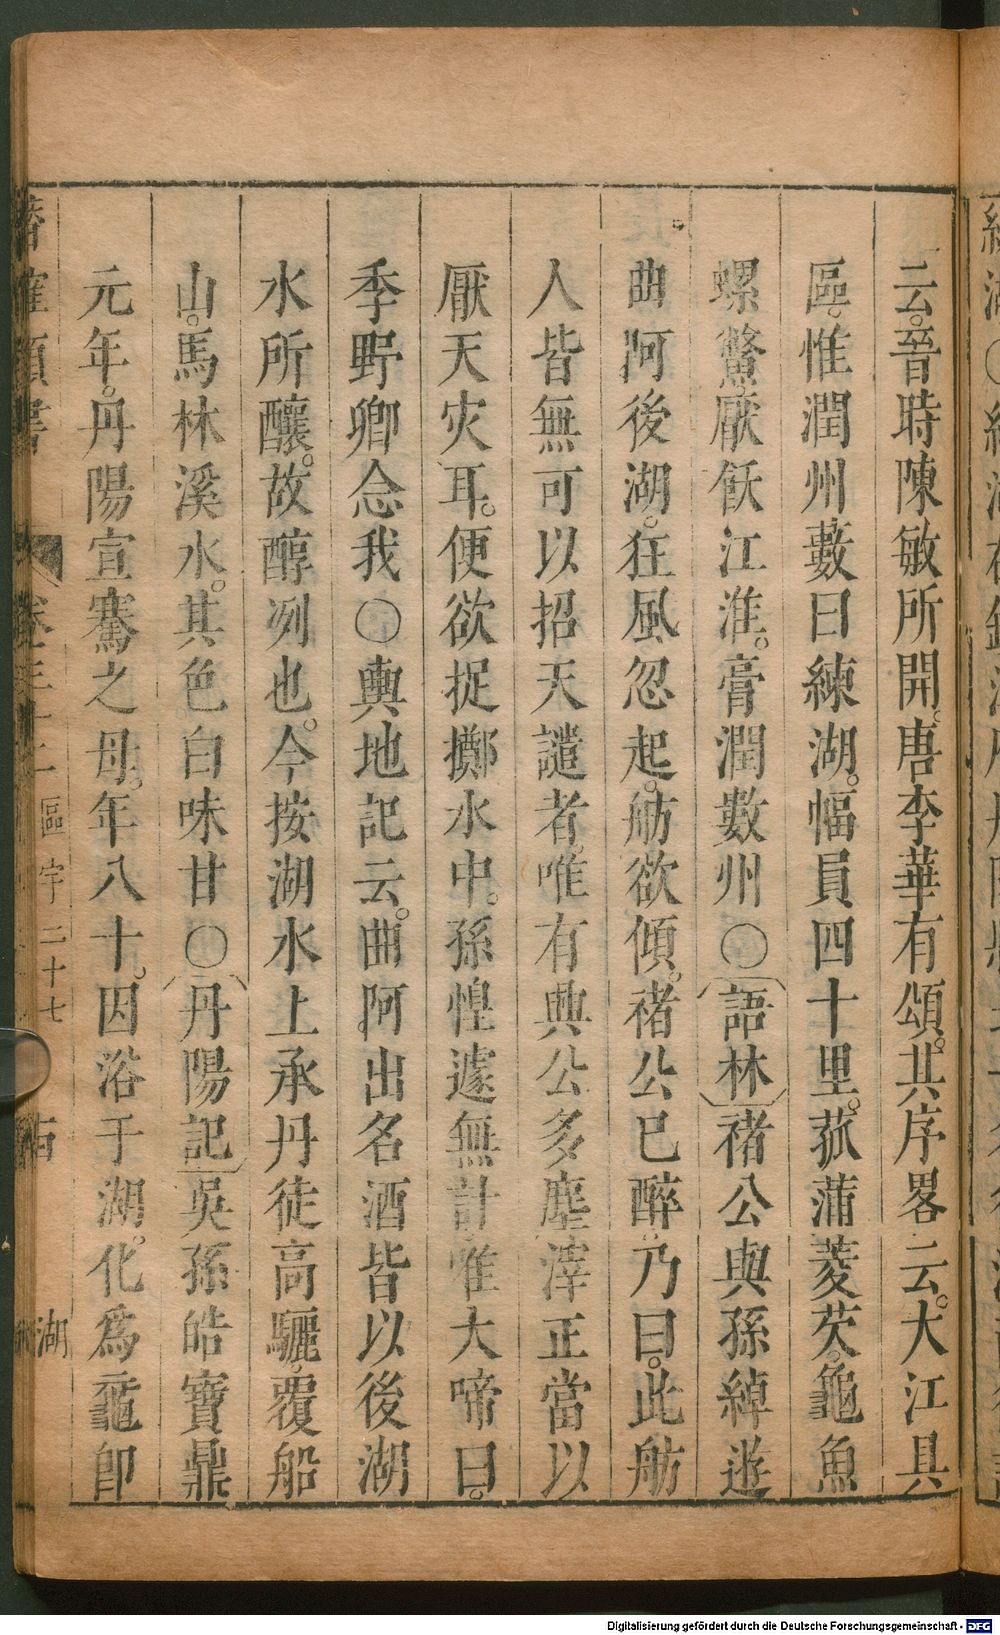 云。晉時陳敏所開。唐李華有頌。其序畧云。大江具
區。惟潤州藪曰練湖。幅員四十里。菰蒲菱芡。龜魚
螺鱉。厭飫江淮。膏潤數州〇語林禇公與孫綽遊
曲阿後湖。狂風忽起。舫欲傾。禇公已醉。乃曰。此舫
人皆無可以招天譴者。唯有典公多塵滓正當以
厭天灾耳。便欲捉擲水中。孫惶遽無計惟大啼曰。
季野卿念我〇輿地記云。曲阿出名酒皆以後湖
水所釀。故醇冽也。今按湖水上承丹徒高驪。覆船
山。馬林溪水。其色白味甘〇丹陽記吳孫皓寶鼎
元年。丹陽宣騫之母。年八十。因浴于湖。化爲黿即
區宇二十七
湖
Digitalisierung gefördert durch die Deutsche Forschungsgemeinschaft - DFG